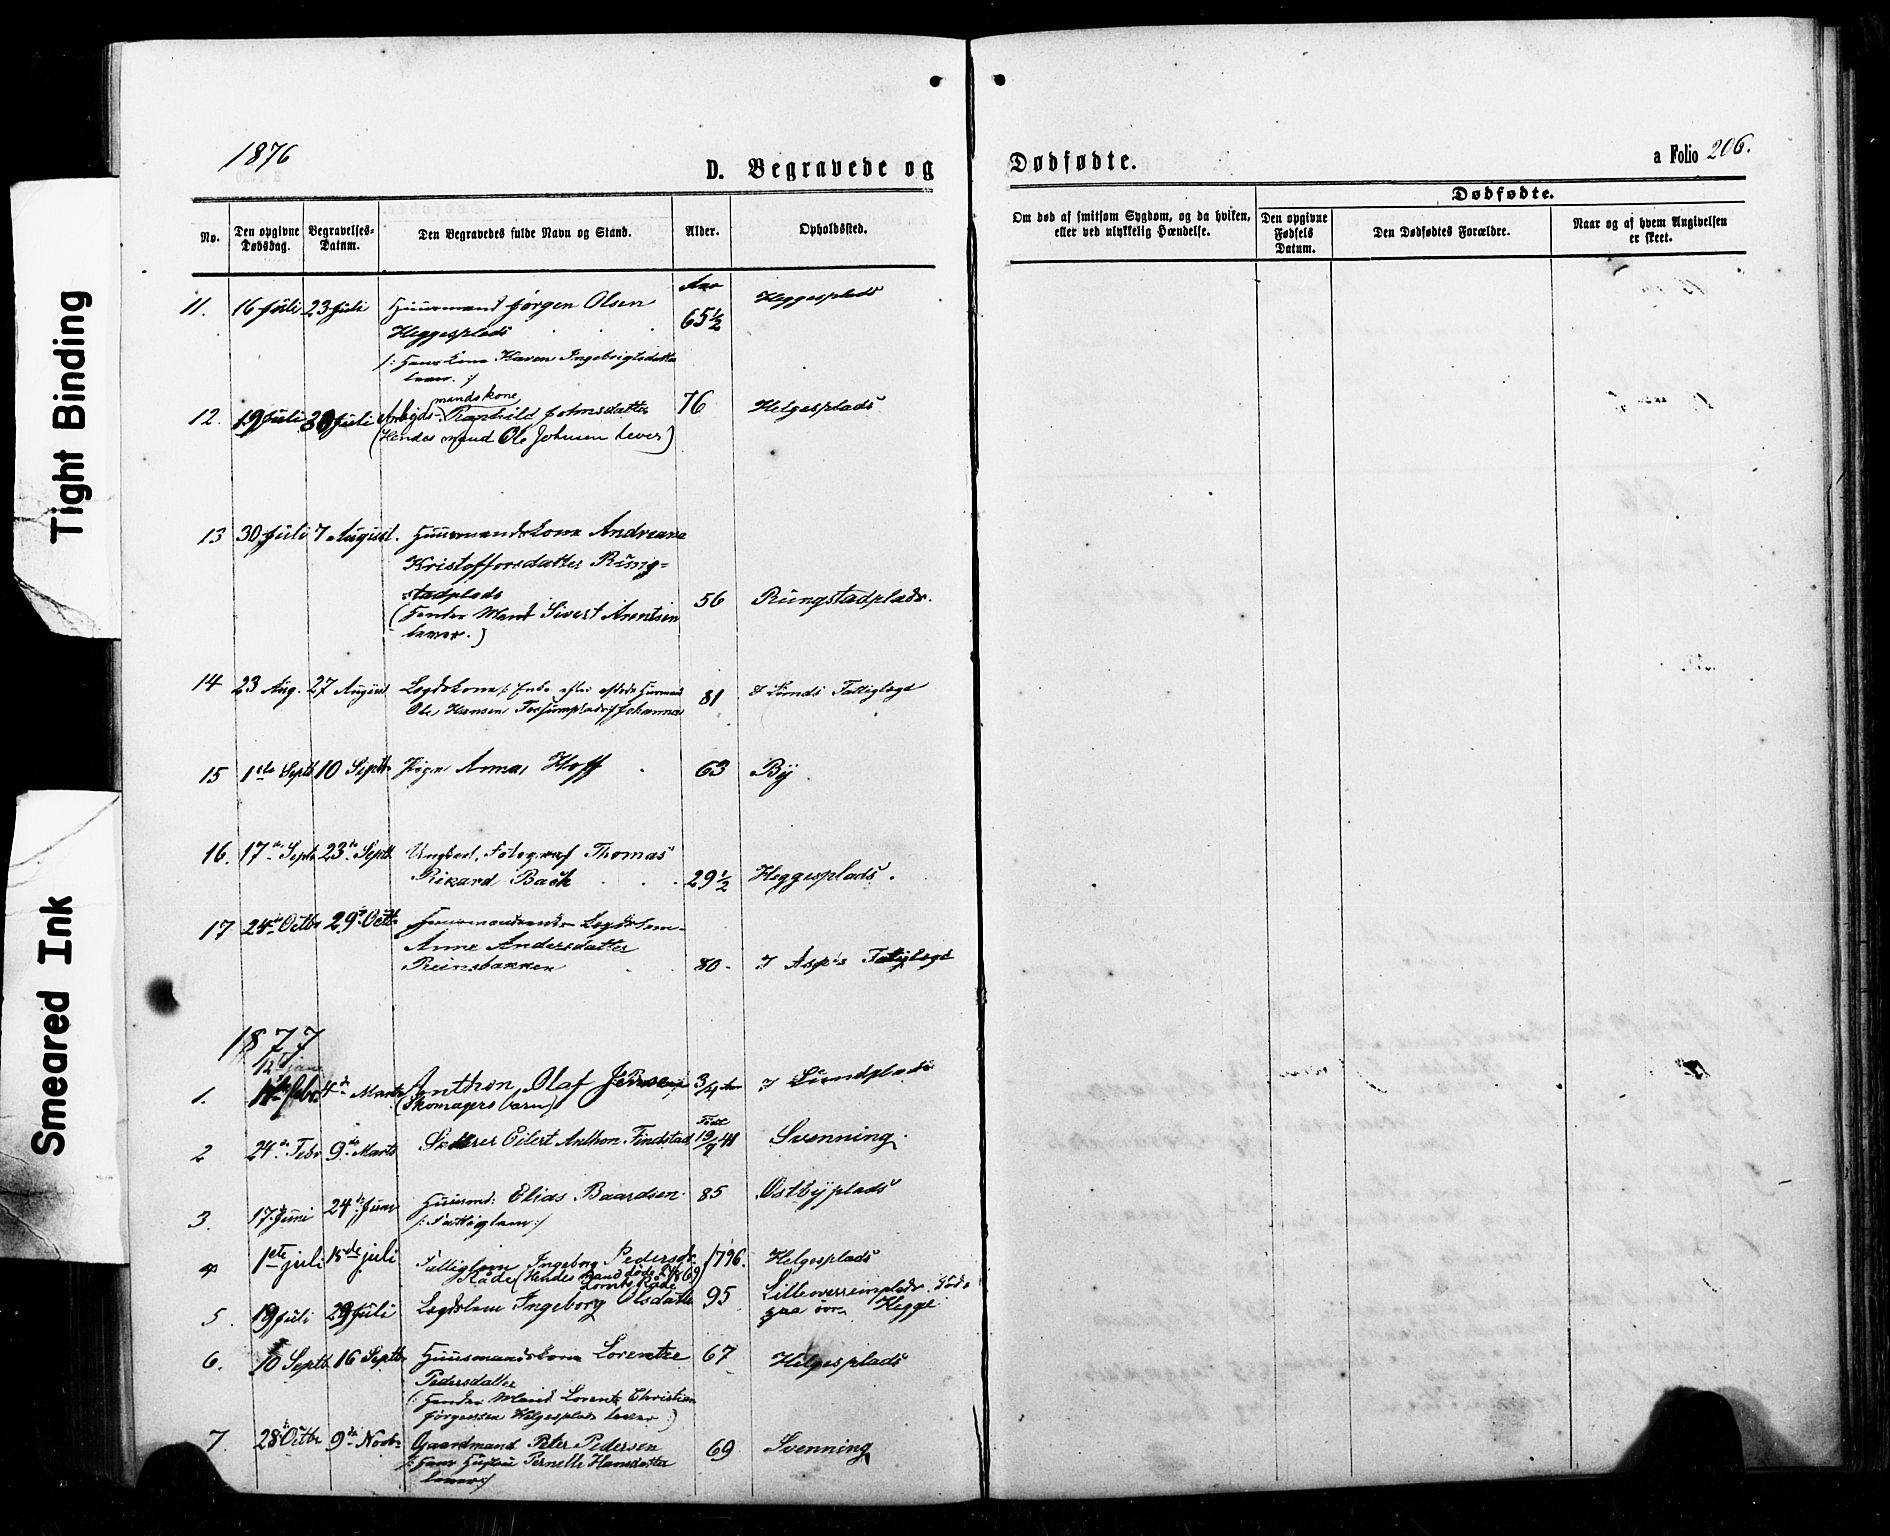 Tight Binding
Smeared Ink
1876
D. Begravede og
Dødfødte.
a Folio 206.
No.
Den opgivne Dødsdag.
Begravelses-Datum.
Den Begravedes fulde Navn og Stand.
Alder.
Opholdssted.
Om død af smitsom Sygdom, og da hvilken, eller ved ulykkelig Hændelse.
Dødfødte.
Den opgivne Fødsels Datum.
Den Dødfødtes Forældre.
Naar og af hvem Angivelsen er skeet.
11. 16 Juli 23 Juli Huusmand Jørgen Olsen Aar 65½ Heggesplads
Heggesplads
/: Hans Kone Karen Ingebrigtsdatter
lever. :/
12. 19 Juli 30 Juli Arbejds-mandskone Ranhild Johnsdatter 76 Helgesplads
(Hendes mand Ole Johnsen lever)
13 30 Juli 7 August. Huusmandskone Andreana
Kristoffersdatter Rung-
stadplads 56 Rungstadplads.
(Hendes Mand Sivert Arentsen
lever.)
14 23 Aug. 27 August Legdskone /: Enke efter afdøde Huusmand
Ole Hansen Forsumplads :/ Johanna 81 I Lunds Fattiglegd
15 1ste Septb 10 Septb. Pige Anna Hoff 63 By
16. 17de Septb 23de Septb Ungkarl, Fotograf Thomas
Rikard Bach 29½ Heggesplads.
17 24de Octbr 29de Octb. Legdslem
Anne Andersdatter
Reinsbakken 80. I Asp's Fattiglegd
1877
12 jan
1. Febr. 4de Marts Anthon Olaf Jensen 3/4 Aar I Lundplads
(Skomagers barn)
2 24de Febr 9de Marts Eilert Anthon Findstad Født 19/9 48 Svenning.
3. 17 Juni 24de Juni Huusmd: Elias Baardsen. 85 Østbyplads
/: Fattiglem :/
4 1ste juli 15de juli Fattiglem Ingeborg Pedersdr. 1796. Helgesplads
Råde (Hendes mand døde 1869)
Lornts Råde
5. 19 Juli 29 Juli Legdslem Ingeborg Olsdatter 95 Lilleverreimplads. Døde
paa øvr. Hegge
6. 10 Septb. 16 Septbr Huusmandskone Lorentze 67 Helgesplads
Pedersdatter
(: Hendes Mand Lorents Christian
Jørgensen Helgesplads lever :)
7. 28de Octbr 9de Novbr Gaardmand Peter Pedersen 69 Svenning
/: Hans Hustru Pernelle Hansdatter
lever :/